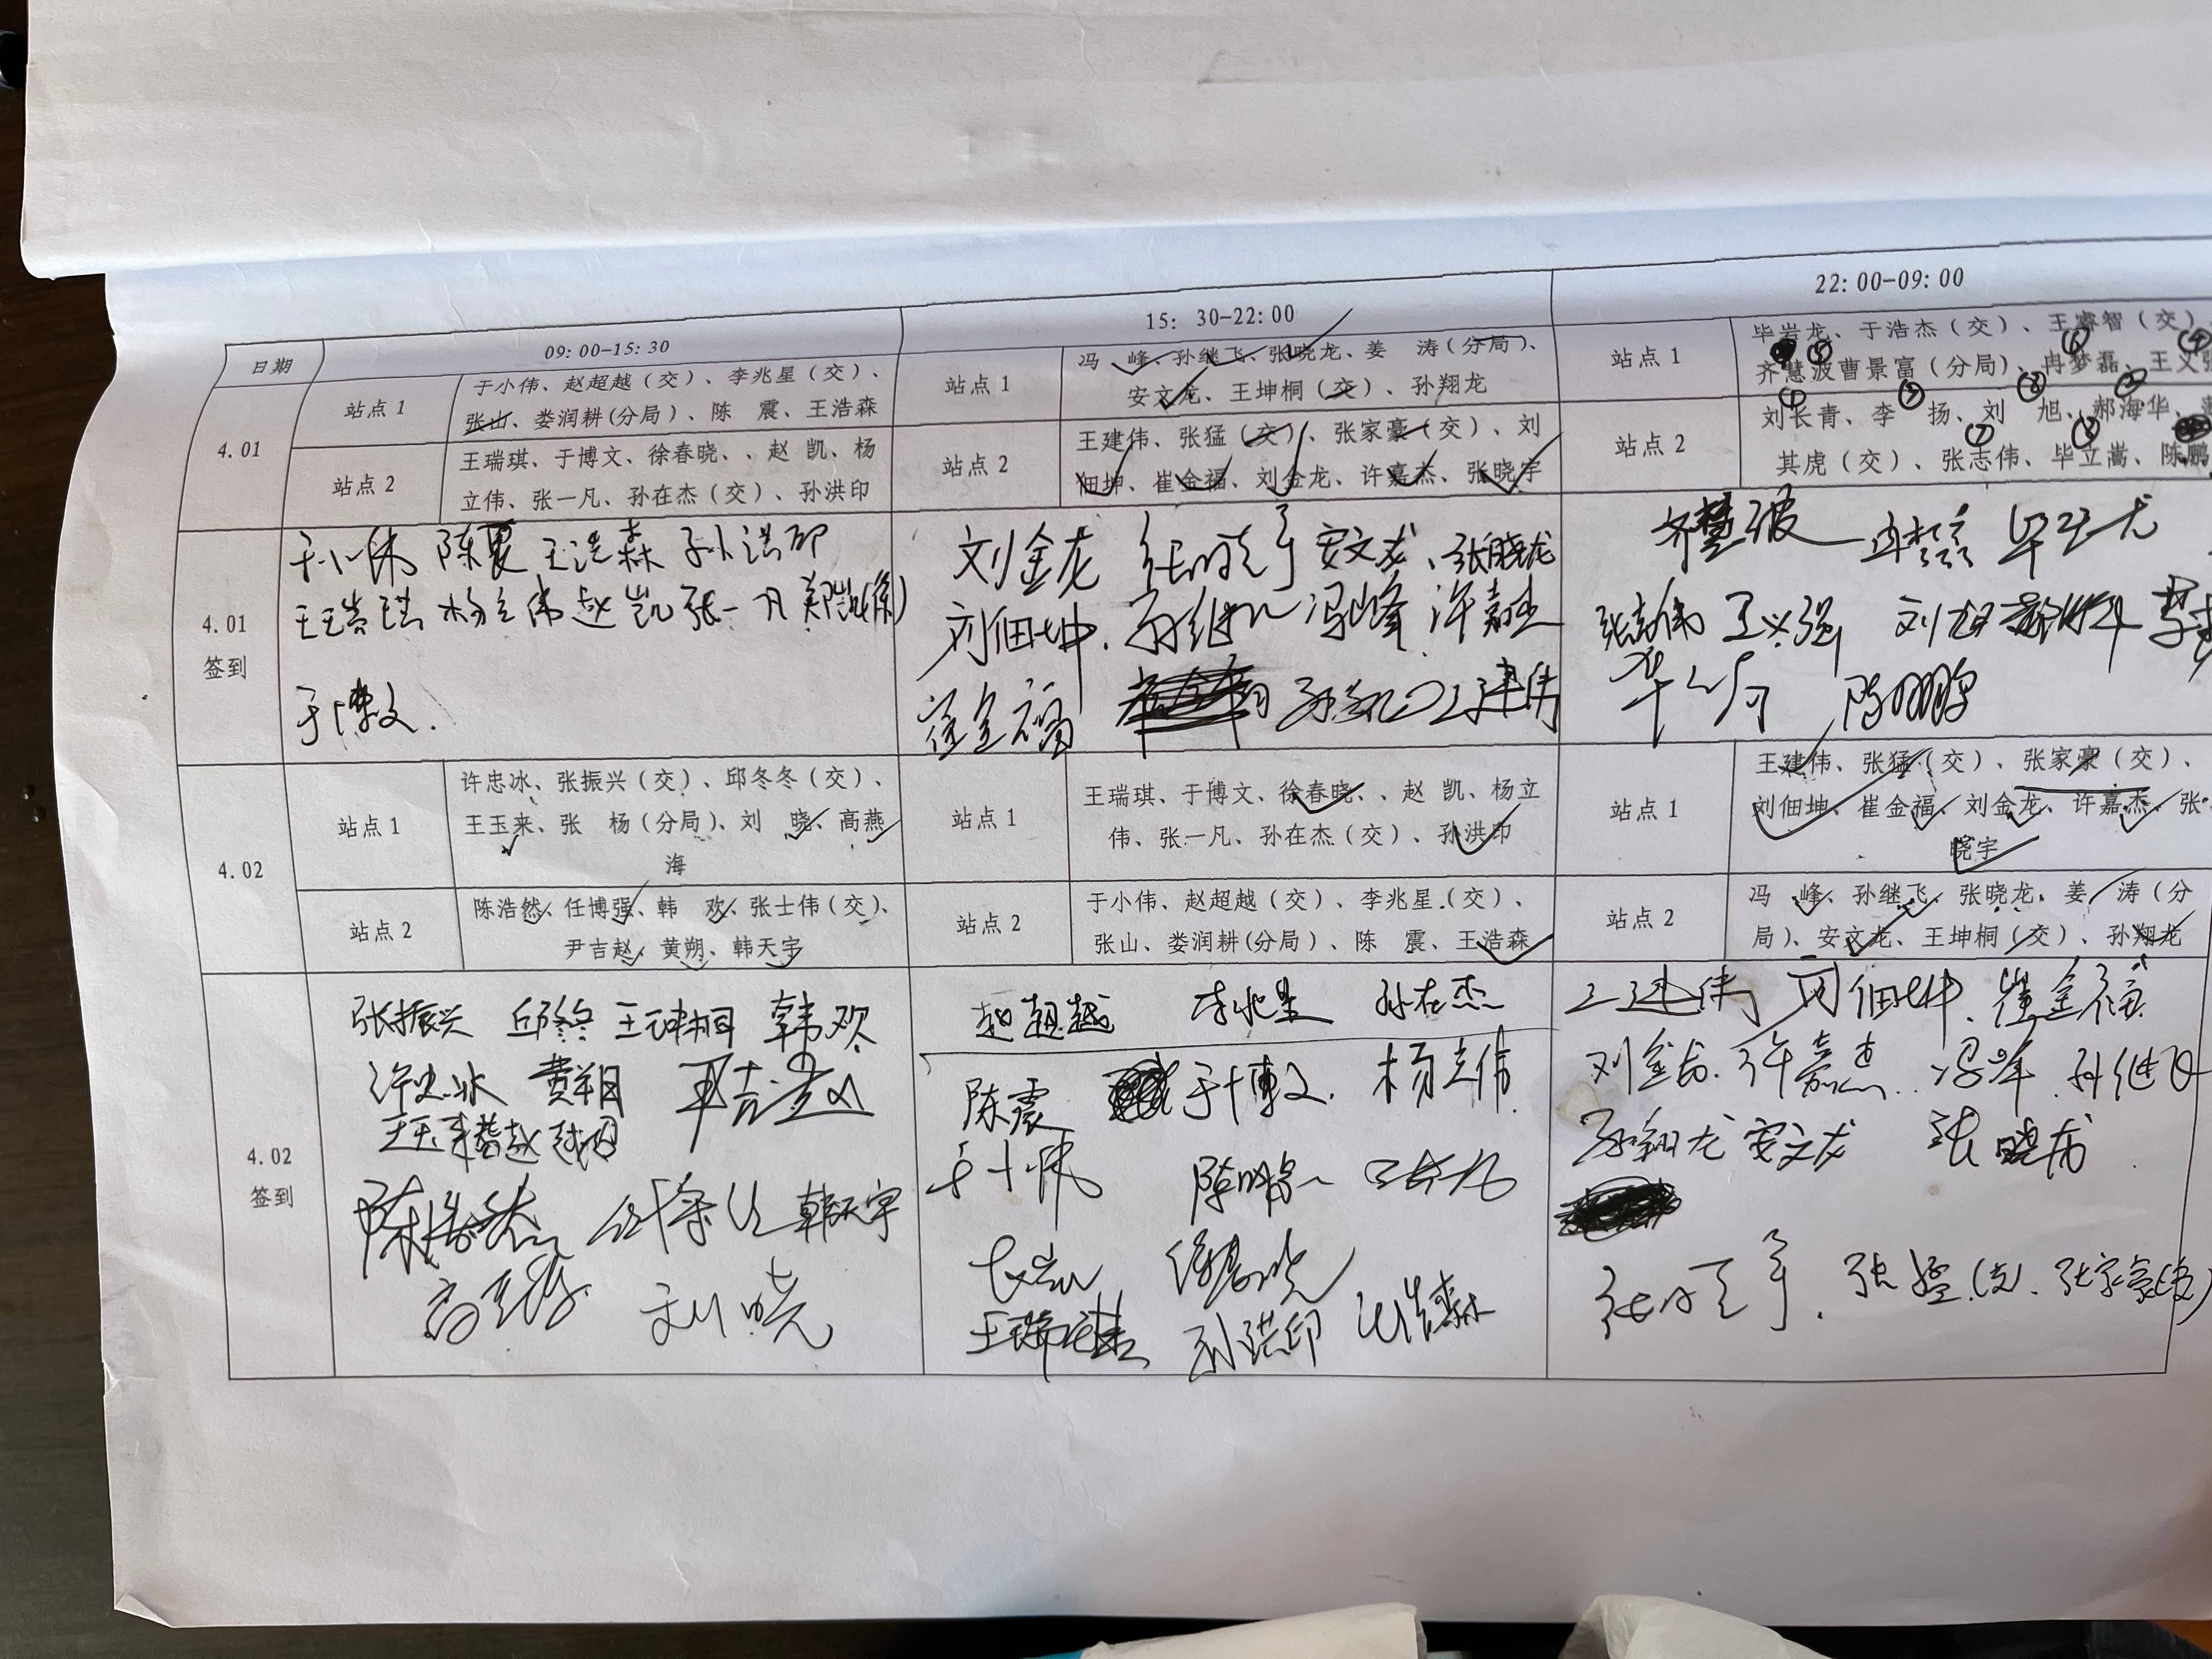 日期 09:00-15:30 15:30-22:00 22:00-09:00
4.01
站点1 于小伟、赵超越(交)、李兆星(交)、
张山、娄润耕(分局)、陈 震、王浩森
站点2 王瑞琪、于博文、徐春晓、、赵 凯、杨
立伟、张一凡、孙在杰(交)、孙洪印
站点1 冯 峰、孙继飞、张晓龙、姜 涛(分局)、
安文龙、王坤桐(交)、孙翔龙
站点2 王建伟、张猛(交)、张家豪(交)、刘
佃坤、崔金福、刘金龙、许嘉杰、张晓宇
站点1 毕岩龙、于浩杰(交)、王睿智(交)、
齐慧波曹景富(分局)、冉梦磊、王义
站点2 刘长青、李 扬、刘 旭、郝海华、
其虎(交)、张志伟、毕立嵩、陈鹏
4.01
签到
于小伟 陈震 王浩森 孙洪印
王瑞琪 杨立伟 赵凯 张一凡
于博文.
刘金龙 张晓宇 安文龙、张晓龙
刘佃坤. 孙继飞 冯峰 许嘉杰
崔金福 王建伟
齐慧波
张志伟 王义强 刘旭
4.02
站点1 许忠冰、张振兴(交)、邱冬冬(交)、
王玉来、张 杨(分局)、刘 晓、高燕
海
站点2 陈浩然、任博强、韩 欢、张士伟(交)、
尹吉赵、黄朔、韩天宇
站点1 王瑞琪、于博文、徐春晓、、赵 凯、杨立
伟、张一凡、孙在杰(交)、孙洪印
站点2 于小伟、赵超越(交)、李兆星(交)、
张山、娄润耕(分局)、陈 震、王浩森
站点1 王建伟、张猛(交)、张家豪(交)、
刘佃坤、崔金福、刘金龙、许嘉杰、张
晓宇
站点2 冯 峰、孙继飞、张晓龙、姜 涛(分
局)、安文龙、王坤桐(交)、孙翔龙
4.02
签到
张振兴 邱冬冬 王坤桐 韩欢
许忠冰 黄朔 尹吉赵
王玉来
陈浩然 韩天宇
高燕海 刘晓
赵超越 李兆星 孙在杰
陈震 于博文. 杨立伟
于小伟
徐春晓
王瑞琪 孙洪印 王浩森
王建伟 刘佃坤. 崔金福
刘金龙. 许嘉杰. 冯峰 孙继飞
孙翔龙 安文龙 张晓龙
张晓宇. 张猛(交). 张家豪(交)